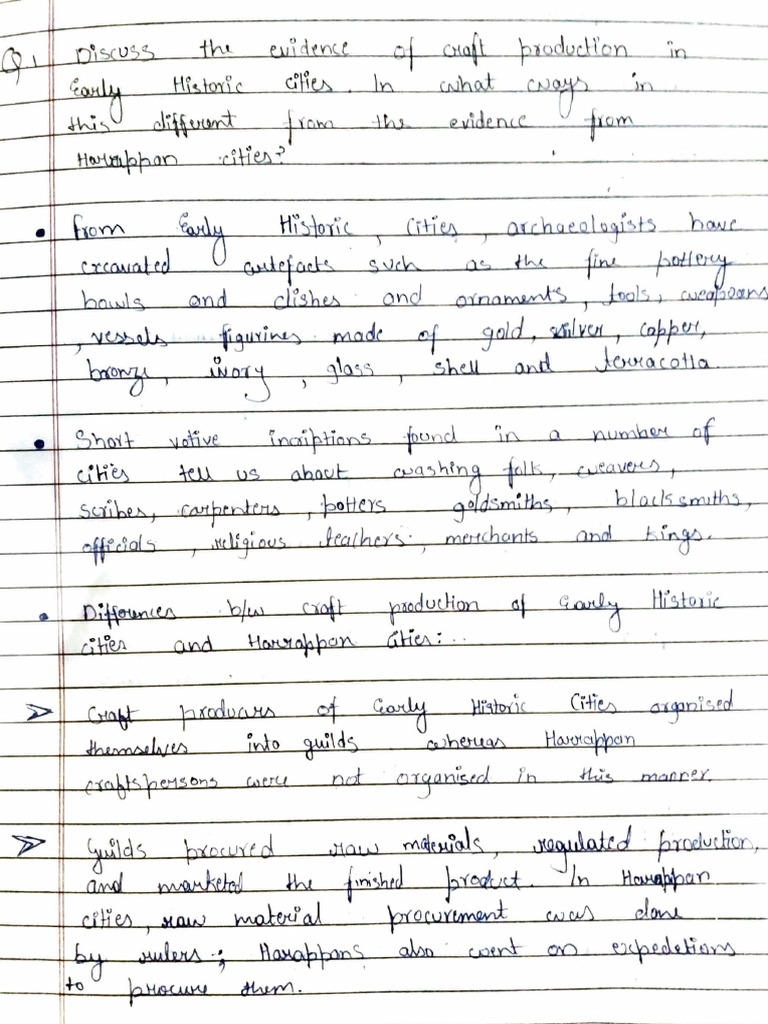 Q.1 Discuss the evidence of craft production in
Early Historic cities. In what ways in
this different from the evidence from
Harrappan cities?
• From Early Historic, cities, archaeologists have
excavated artefacts such as the fine pottery
bowls and dishes and ornaments, tools, weapoans
, vessels figurines made of gold, silver, copper,
bronze, ivory, glass, shell and terracotta.
• Short votive incriptions found in a number of
cities tell us about washing folk, weavers,
scribes, carpenters, potters goldsmiths, blacksmiths,
officials, religious teachers, merchants and kings.
• Differences b/w craft production of Early Historic
cities and Harrappan Cities:..
➢ Craft producers of Early Historic Cities organised
themselves into guilds whereas Harrappan
craftspersons were not organised in this manner.
➢ Guilds procured raw materials, regulated production,
and marketed the finished product. In Harappan
cities, raw material procurement was done
by rulers; Harappans also went on expedetions
to procure them.